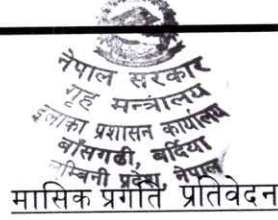 नेपाल सरकार
गृह मन्त्रालय
इलाका प्रशासन कार्यालय
बाँसगढी, बर्दिया
लुम्बिनी प्रदेश, नेपाल
मासिक प्रगति प्रतिवेदन